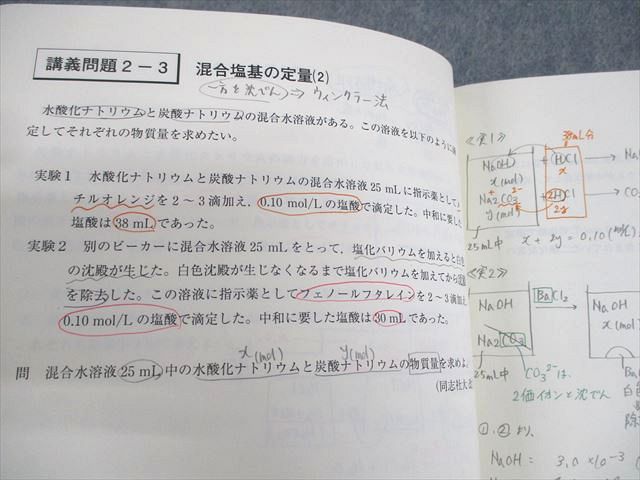 講義問題2-3 混合塩基の定量(2)
一方を沈でん ⇒ ウィンクラー法
水酸化ナトリウムと炭酸ナトリウムの混合水溶液がある。この溶液を以下のように
定してそれぞれの物質量を求めたい。
実験1 水酸化ナトリウムと炭酸ナトリウムの混合水溶液25 mLに指示薬として
チルオレンジを2〜3滴加え、0.10 mol/Lの塩酸で滴定した。中和に要し
塩酸は38 mLであった。
実験2 別のビーカーに混合水溶液25 mLをとって、塩化バリウムを加えると白色
の沈殿が生じた。白色沈殿が生じなくなるまで塩化バリウムを加えてから
を除去した。この溶液に指示薬としてフェノールフタレインを2〜3滴加え
0.10 mol/Lの塩酸で滴定した。中和に要した塩酸は30 mLであった。
x(mol) y(mol)
問 混合水溶液25 mL中の水酸化ナトリウムと炭酸ナトリウムの物質量を求めよ。
(同志社大
≪実1≫
38mL分
NaOH + HCl → Na
x(mol) x
Na2CO3 + 2HCl → CO
y(mol) 2y
25mL中 x + 2y = 0.10
≪実2≫
NaOH BaCl2 NaOH
x(mol)
Na2CO3
25mL中 CO3²⁻は Ba
2価イオンと沈でん 白色
除
①,②より、
NaOH = 3.0 ×10⁻³